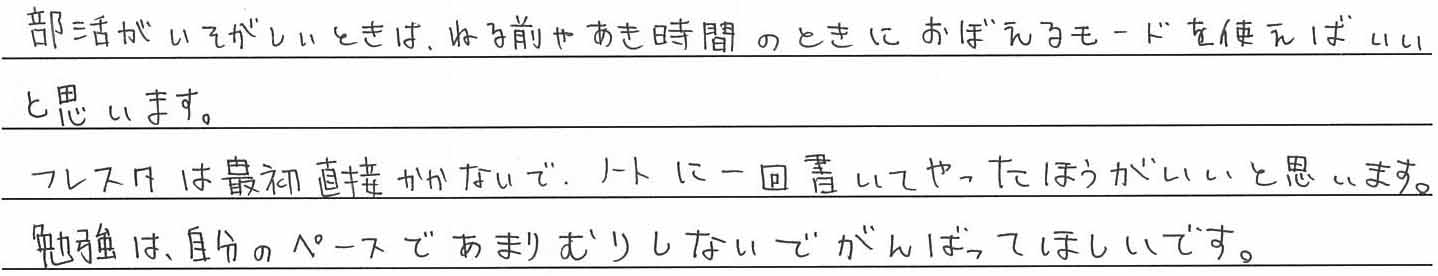 部活がいそがしいときは、ねる前やあき時間のときにおぼえるモードを使えばいい
と思います。
フレスタは最初直接かかないで、ノートに一回書いてやったほうがいいと思います。
勉強は、自分のペースであまりむりしないでがんばってほしいです。